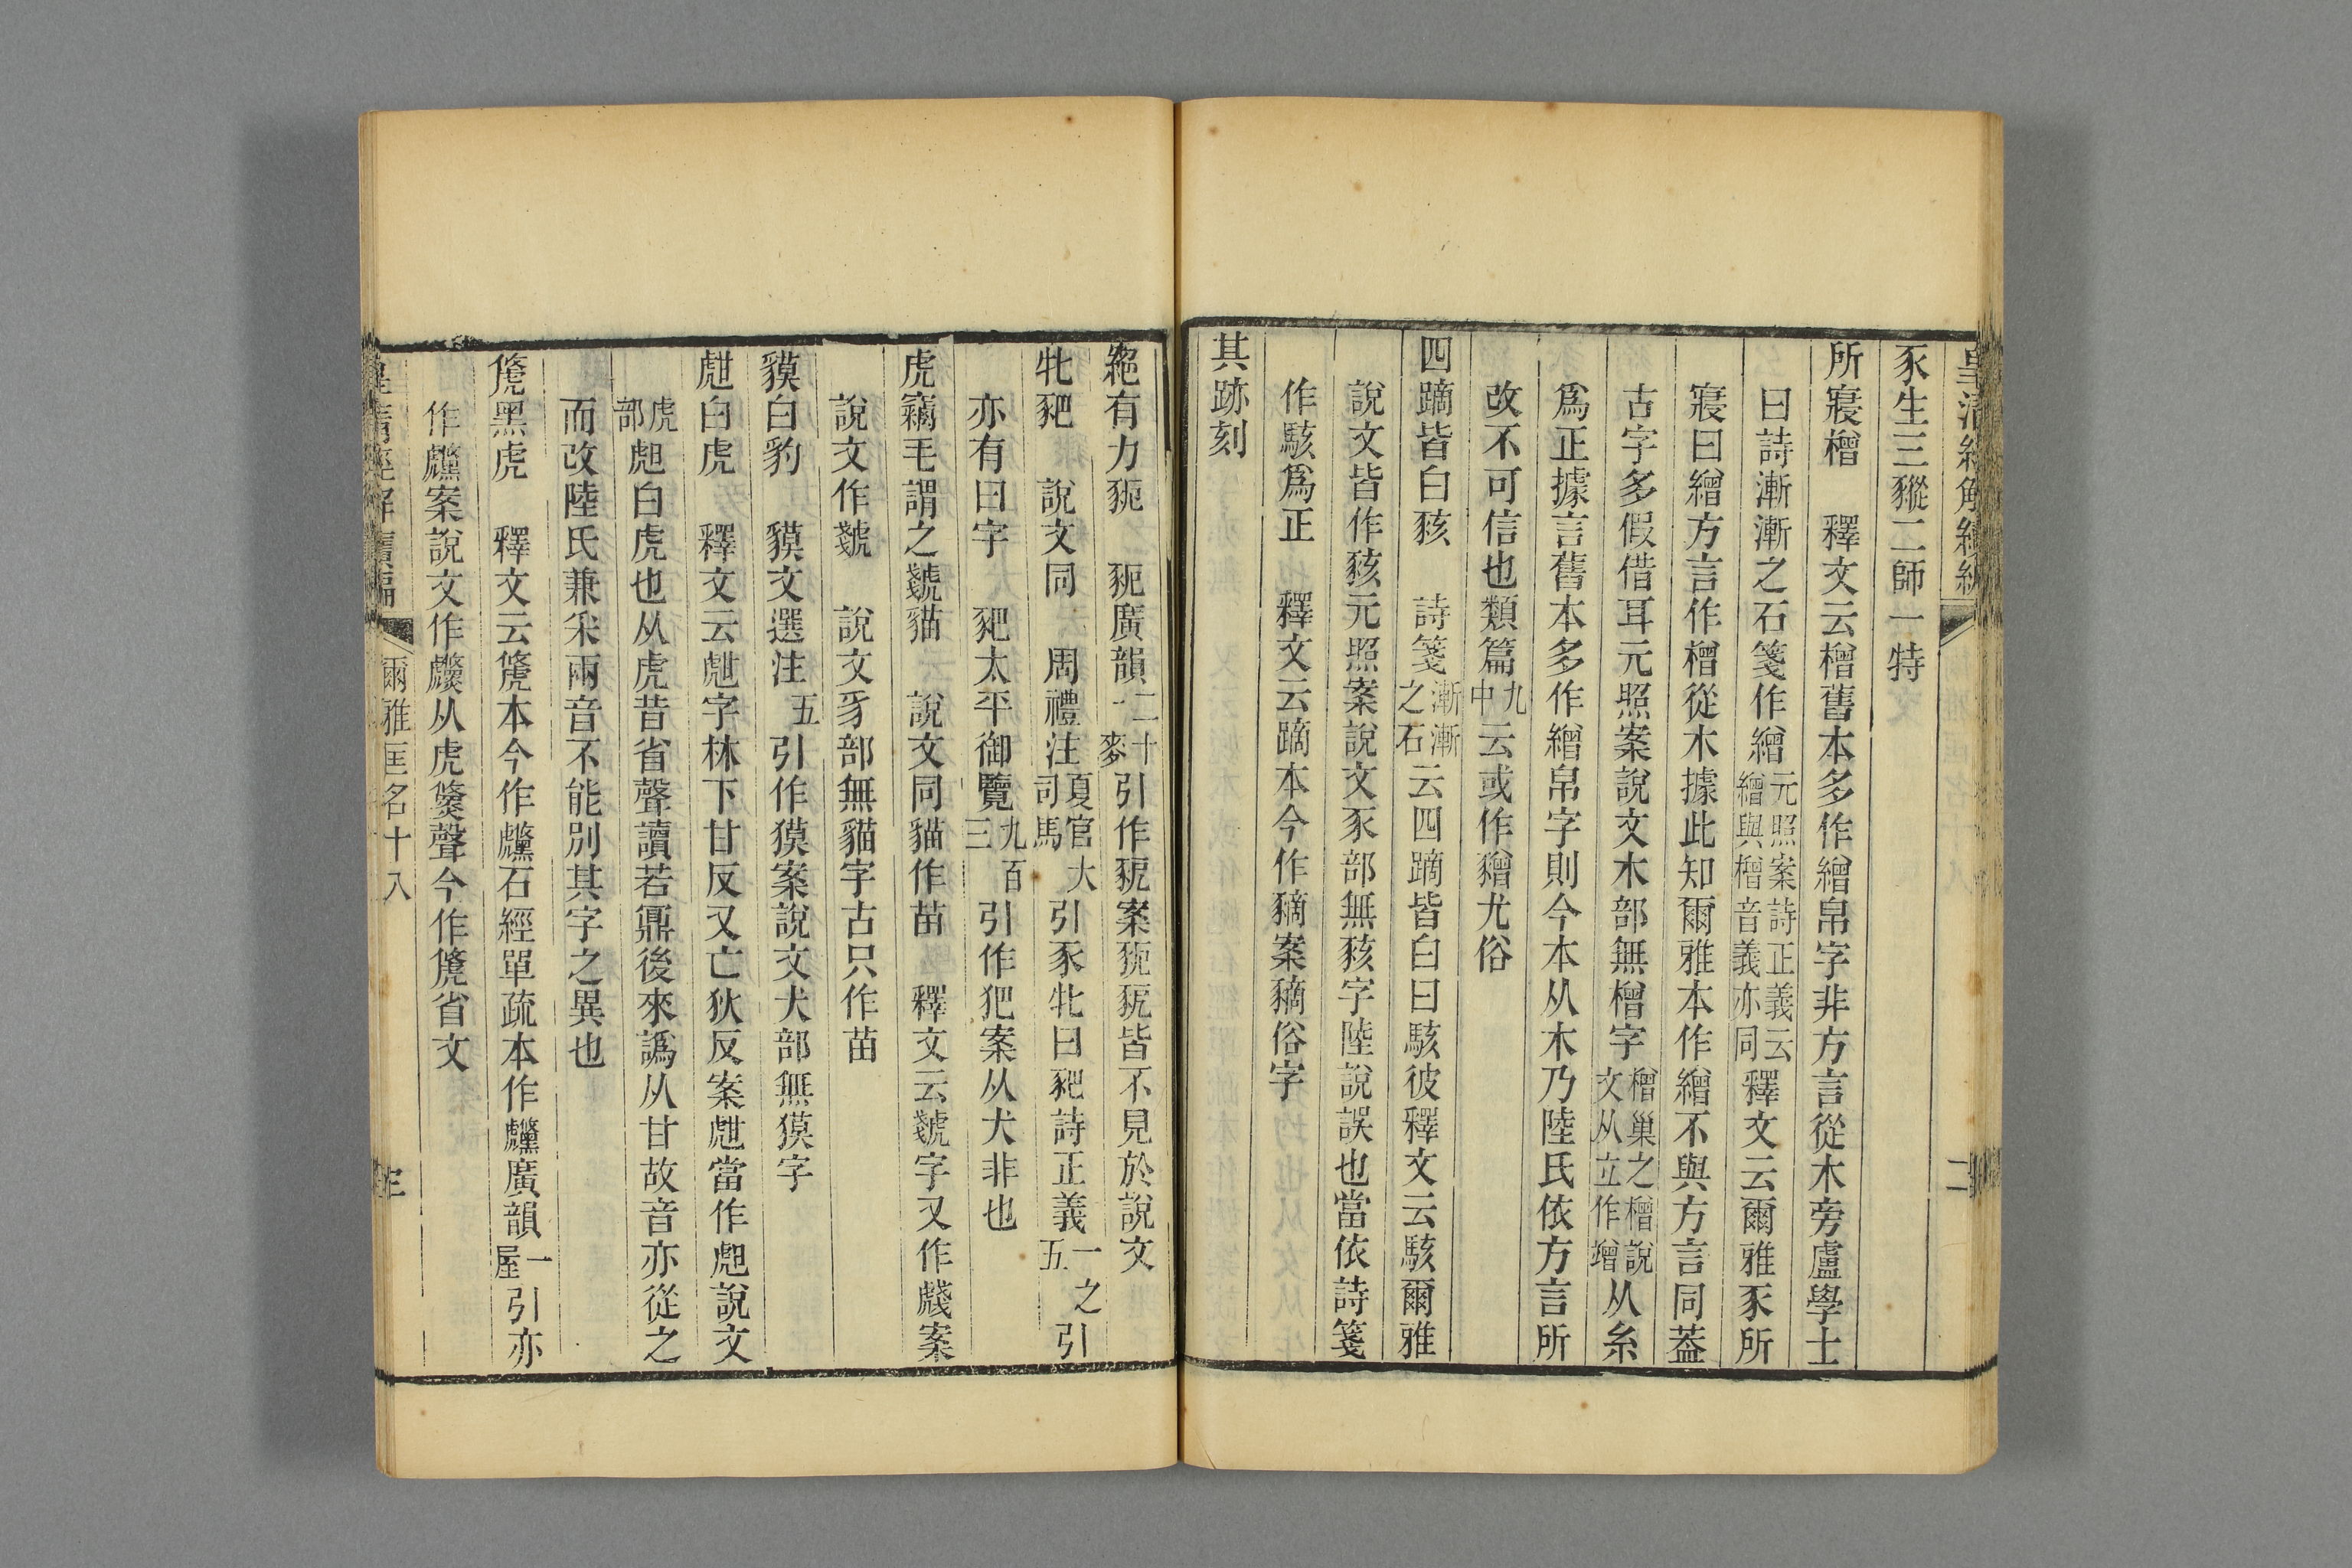 皇清經解續編
二
豕生三豵二師一特
所寢橧　釋文云橧舊本多作繒帛字非方言從木旁盧學士
曰詩漸漸之石箋作繒元照案詩正義云繒與橧音義亦同釋文云爾雅豕所
寢曰繒方言作橧從木據此知爾雅本作繒不與方言同葢
古字多假借耳元照案說文木部無橧字橧巢之橧說文从立作竲从糸
爲正據言舊本多作繒帛字則今本从木乃陸氏依方言所
改不可信也類篇九中云或作㺓尤俗
四蹢皆白豥　詩箋漸漸之石云四蹢皆白曰駭彼釋文云駭爾雅
說文皆作豥元照案說文豕部無豥字陸說誤也當依詩箋
作駭爲正　釋文云蹢本今作豴案豴俗字
其跡刻
絕有力豟　豟廣韻二十一麥引作䝈案豟䝈皆不見於說文
牝豝　說文同　周禮注夏官大司馬引豕牝曰豝詩正義一之五引
亦有曰字　豝太平御覽九百三引作犯案从犬非也
虎竊毛謂之虦貓　說文同貓作苗　釋文云虦字又作㦃案
說文作虦　說文豸部無貓字古只作苗
貘白豹　貘文選注五引作獏案說文犬部無獏字
甝白虎　釋文云甝字林下甘反又亡狄反案甝當作䖑說文
虎部䖑白虎也从虎昔省聲讀若鼏後來譌从甘故音亦從之
而改陸氏兼采兩音不能別其字之異也
虪黑虎　釋文云虪本今作䖝石經單疏本作䖝廣韻一屋引亦
作䖝案說文作虪从虎儵聲今作虪省文
皇清經解續編
爾雅匡名十八